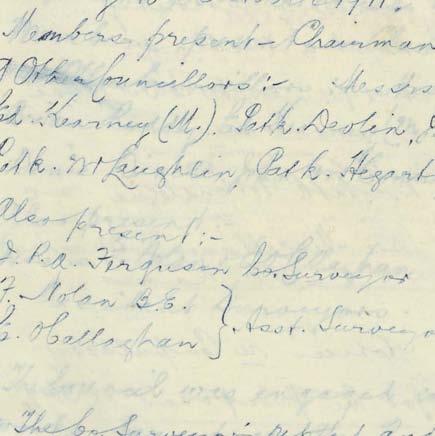 1911.
Members present - Chairman
Other Councillors:- Messrs
Kearney (M.). Patk. Devlin,
Patk. McLaughlin, Patk. Hegart
Also present:-
J. P. A. Ferguson Co. Surveyor
F. Nolan B.E. } Asst. Surveyor
O'Callaghan
The Council was engaged
The Co. Surveyor